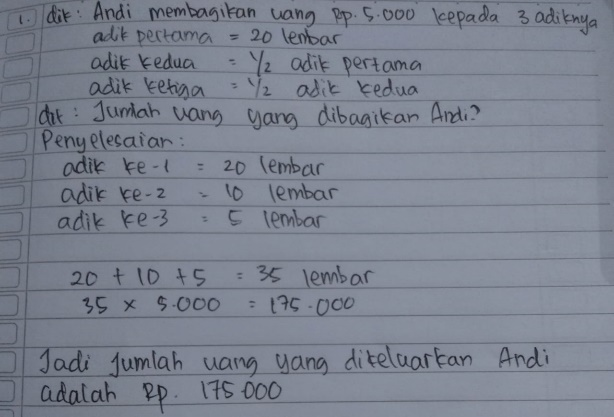 1. dik : Andi membagikan uang Rp. 5.000 kepada 3 adiknya
adik pertama = 20 lembar
adik kedua = 1/2 adik pertama
adik ketiga = 1/2 adik kedua
dit : Jumlah uang yang dibagikan Andi?
Penyelesaian :
adik ke-1 = 20 lembar
adik ke-2 = 10 lembar
adik ke-3 = 5 lembar
20 + 10 + 5 = 35 lembar
35 × 5.000 = 175.000
Jadi Jumlah uang yang dikeluarkan Andi
adalah Rp. 175.000